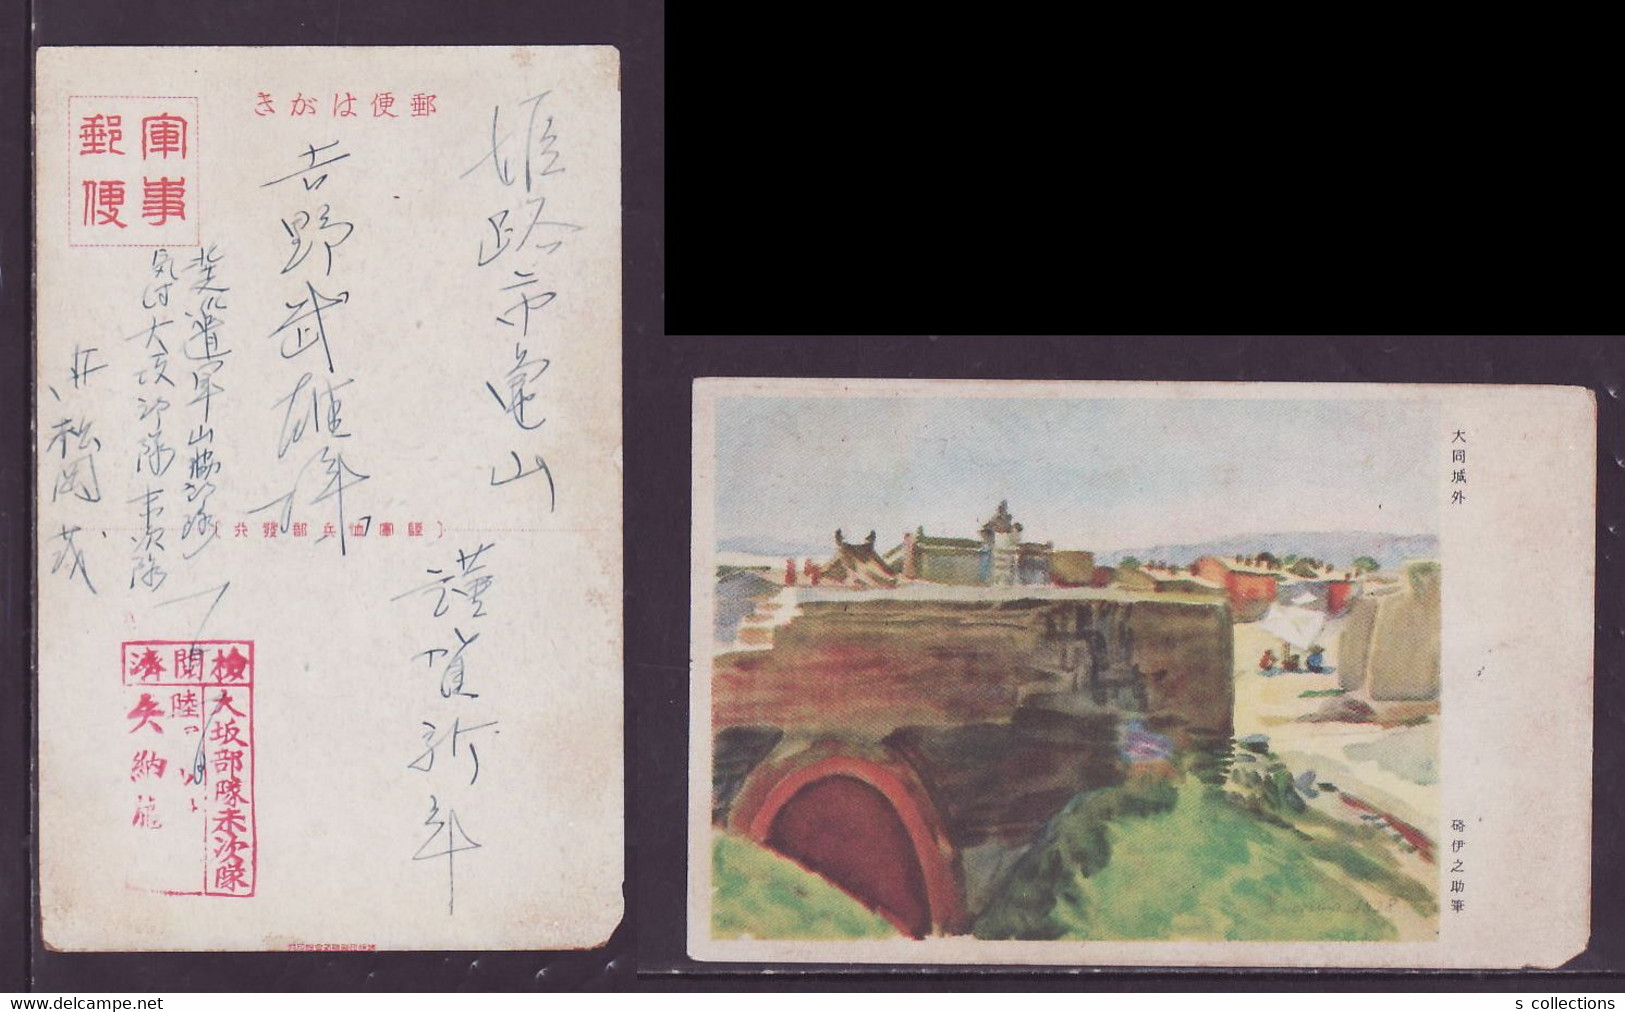 郵便はがき
軍事
郵便
姫路市亀山
吉野武雄様
謹賀新年
北支派遣軍山脇部隊
気付大坂部隊末次隊
松岡茂
検閲済
大坂部隊末次隊
陸
矢納
大同城外
硲伊之助筆
s collections